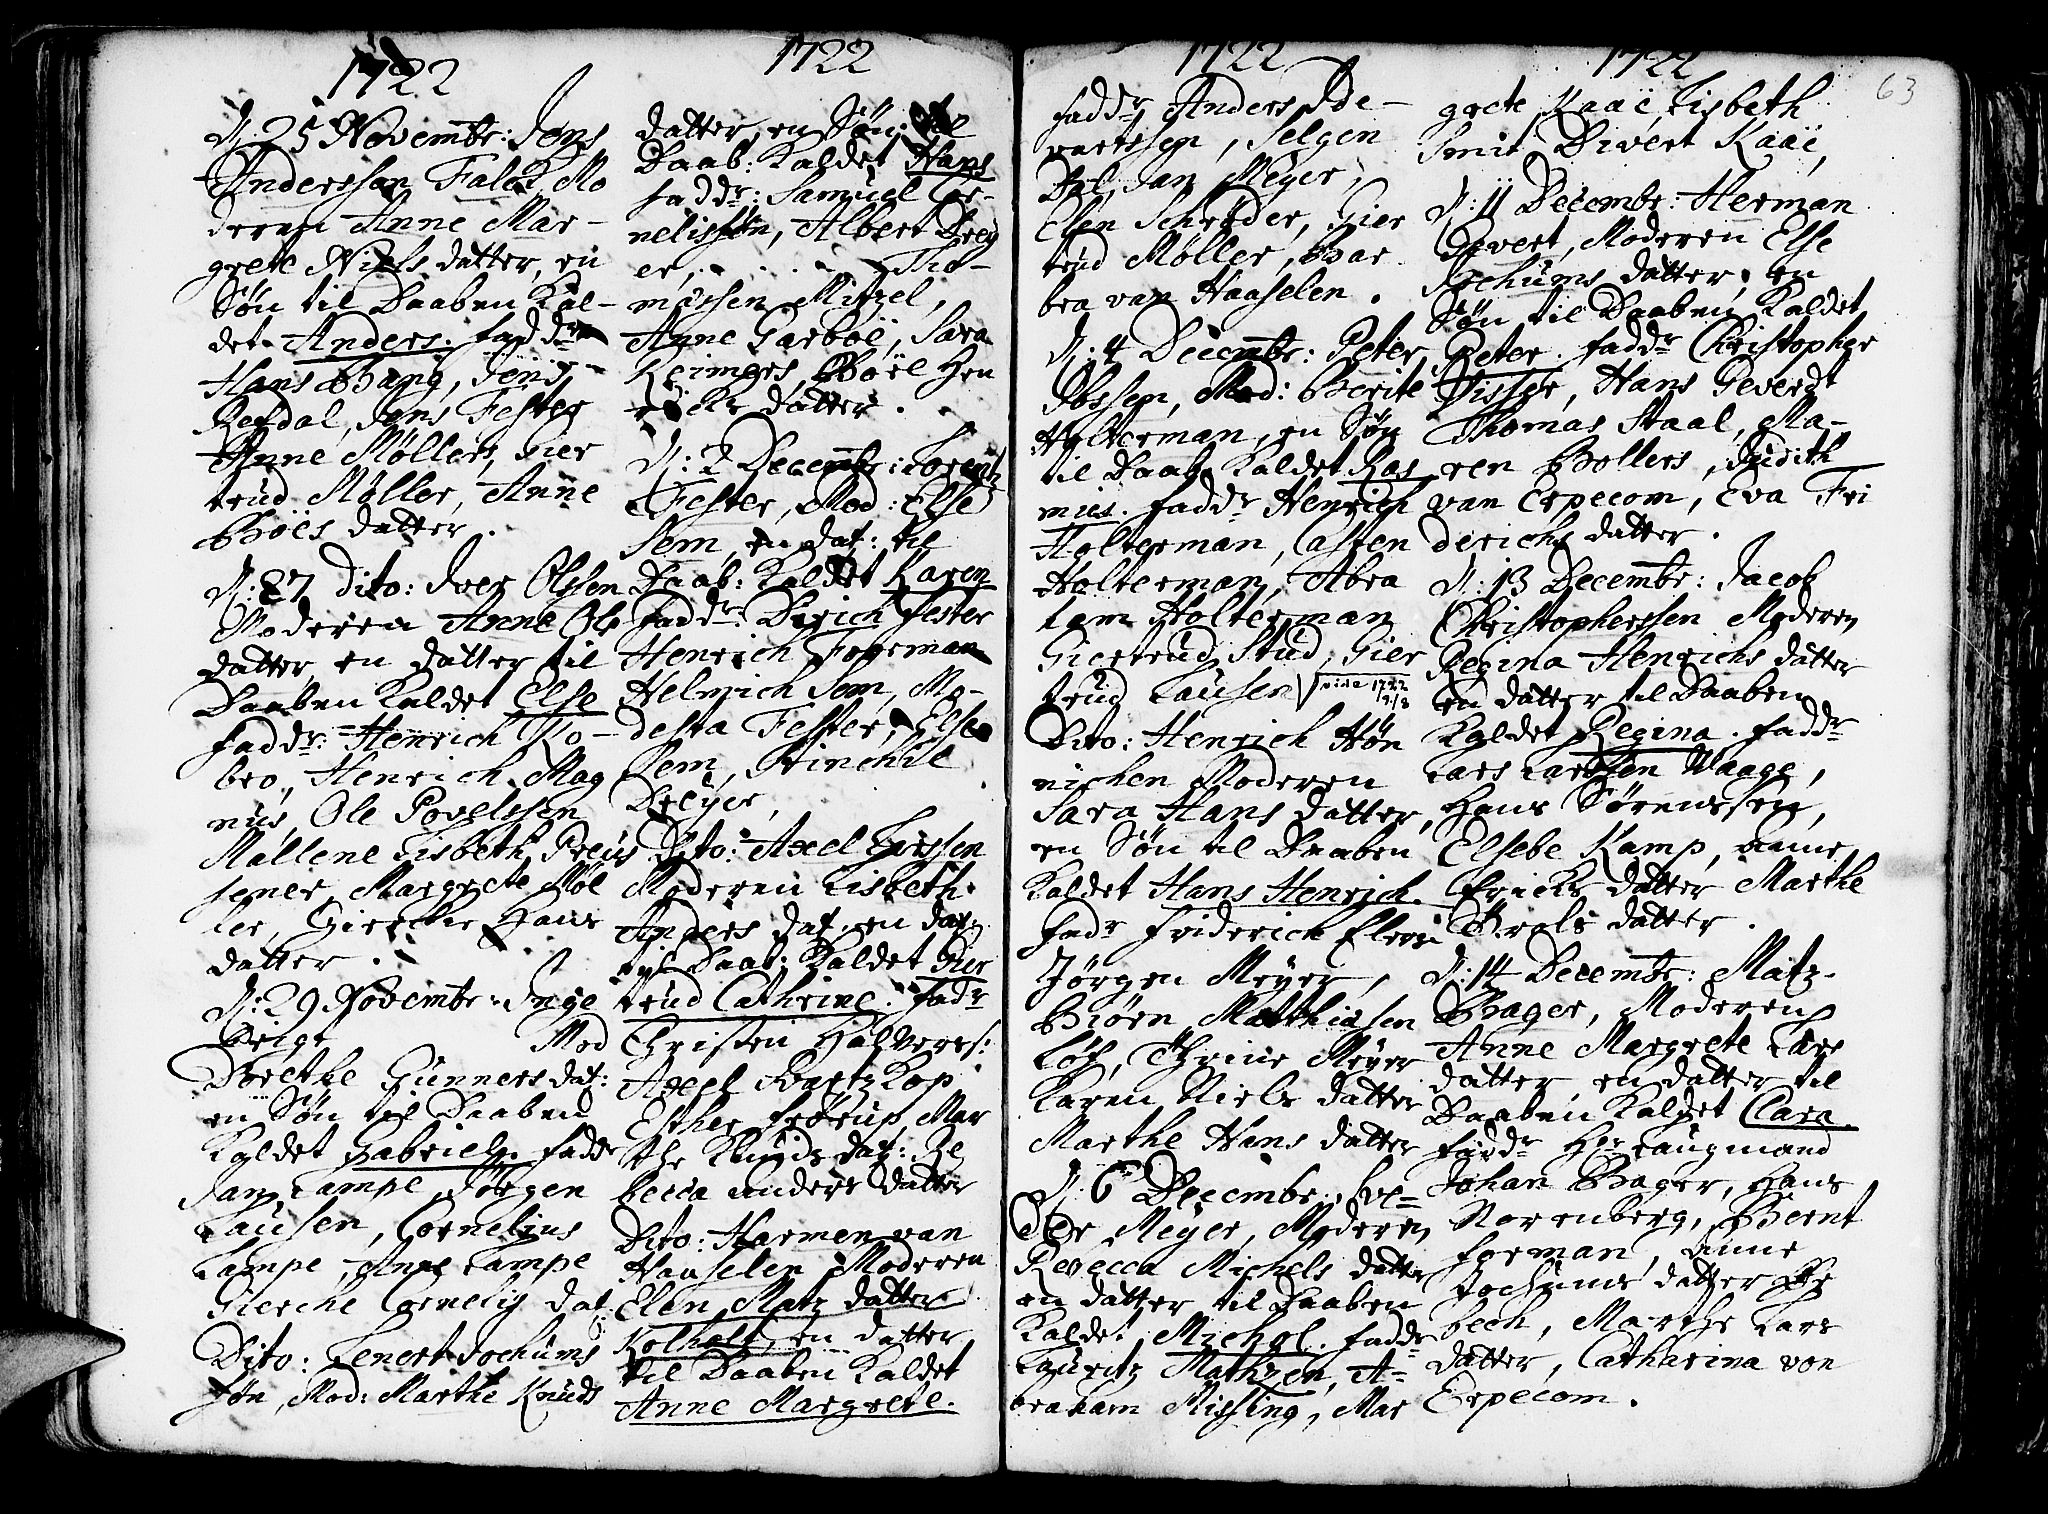 1722
D. 25 Novembr: Jens
Anderssøn Falck, Mo
deren Anne Mar-
grete Niels datter, en
Søn til Daaben Kal-
det Anders. faddr
Hans Bang, Jens
Refdal, Jens Fester
Anne Møllers, Gier
trud Møller, Anne
Boës datter.
D: 27 Dito: Iver Olssen
Moderen Anne Ols
datter, en datter til
Daaben Kaldet Else
faddr: Henrich Ko-
bro, Henrich Mag
nus, Ole Povelssen
Mallene Lisbeth Preus
sener, Margrete Møl
ler, Giercke Hans
datter.
D: 29 Novembr: Inge
Mod
Dorethe Gunners dat:
en Søn til Daaben
Kaldet Gabriel. fadr
Jan Lampe, Jörgen
Lausen, Cornelius
Lampe, Anne Lampe
Gierche Cornelis dat:
Dito: Lenert Jochums
søn, Mod: Marthe Knuds
1722
datter, en Søn til
Daab: Kaldet Hans
faddr: Samuel Cor-
nelissøn, Albert Drey
er, . . . . Tho-
massen Mitzel,
Anne Garboë, Sara
Reimers, Boel Hen
richs datter.
D: 2 Decembr: Lorentz
Fester, Mod: Else
Sem, en dat: til
Daab: Kaldet Karen
faddr: Dirich Fester
Henrich Foorman
Helmich Sem, Mo-
desta Fester, Else
Sem, Stinchie
Dreyer,
Dito: Axel Larssen
Moderen Lisbeth
Anders dat, en dat
til Daab: Kaldet Gier
trud Cathrine. fadr
Christen Halvors:
Axel Svartzkop
Esther frörup, Mar
the Knuds dat: Re
becca Anders datter
Dito: Harmen van
Haaselen Moderen
Elen Matz datter
Kolholt, en datter
til Daaben Kaldet
Anne Margrete.
1722
faddr Anders Ide-
vartssen, Selgen
Dal, Jan Meyer,
Elen Schrøder, Gier
trud Møller, Bar
bra van Haaselen.
D: 4 Decembr: Peter
Ibssen, Mod: Berite
Holterman, en Søn
til Daab: Kaldet Ras
mus. faddr Henrich
Holterman, Casten
Holterman, Abra
ham Holterman
Giertrud Stud, Gier
trud Lausen vide 1722
Dito: Henrich Høn
nichen Moderen
Sara Hans datter,
en Søn til Daaben
Kaldet Hans Henrich.
fadr Friderich
Jörgen Meyer,
Biørn Matthiasen
Trine Meyer
Karen Niels datter
Marthe Hans datter
D. 6 Decembr:
Meyer, Moderen
Rebecca Michels datter
en datter til Daaben
Kaldet Michel. faddr
Lauritz Mathzen, A-
braham Nissing, Mar
1722
63
grete Kaaë, Lisbeth
Smit Divert Kaaë,
D: 11 Decembr: Herman
Gevert, Moderen Else
Jochums datter, en
Søn til Daaben Kaldet
Peter. faddr Christopher
Visser, Hans Geverdt
Thomas Staal, Ma-
ren Bollers, Judith
van Erpecom, Eva Fri
derichs datter.
D: 13 Decembr: Jacob
Christopherssen Moderen
Regina Henrichs datter
en datter til Daaben
Kaldet Regina. faddr
Lars Larssen Waage,
Hans Sørenssen,
Elsebe Kamp, Anne
Ericks datter Marthe
Troels datter.
D: 14 Decembr: Matz
Bager, Moderen
Anne Margrete Lars
datter, en datter til
Daaben Kaldet Clara.
faddr Hr: Laugmand
Johan Bager, Hans
Norenberg, Bernt
Forman, Anne
Jochums datter Be
bech, Marthe Lars
datter, Catharina von
Erpecom.